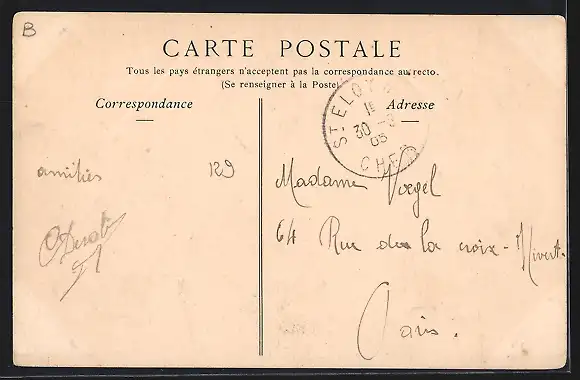 B
CARTE POSTALE
Tous les pays étrangers n'acceptent pas la correspondance au recto.
(Se renseigner à la Poste)
Correspondance
Adresse
ST ELOY
1E
30 -3
05
CHER
amitiés
129
Madame Vogel
64 Rue de la croix - Nivert
Paris.